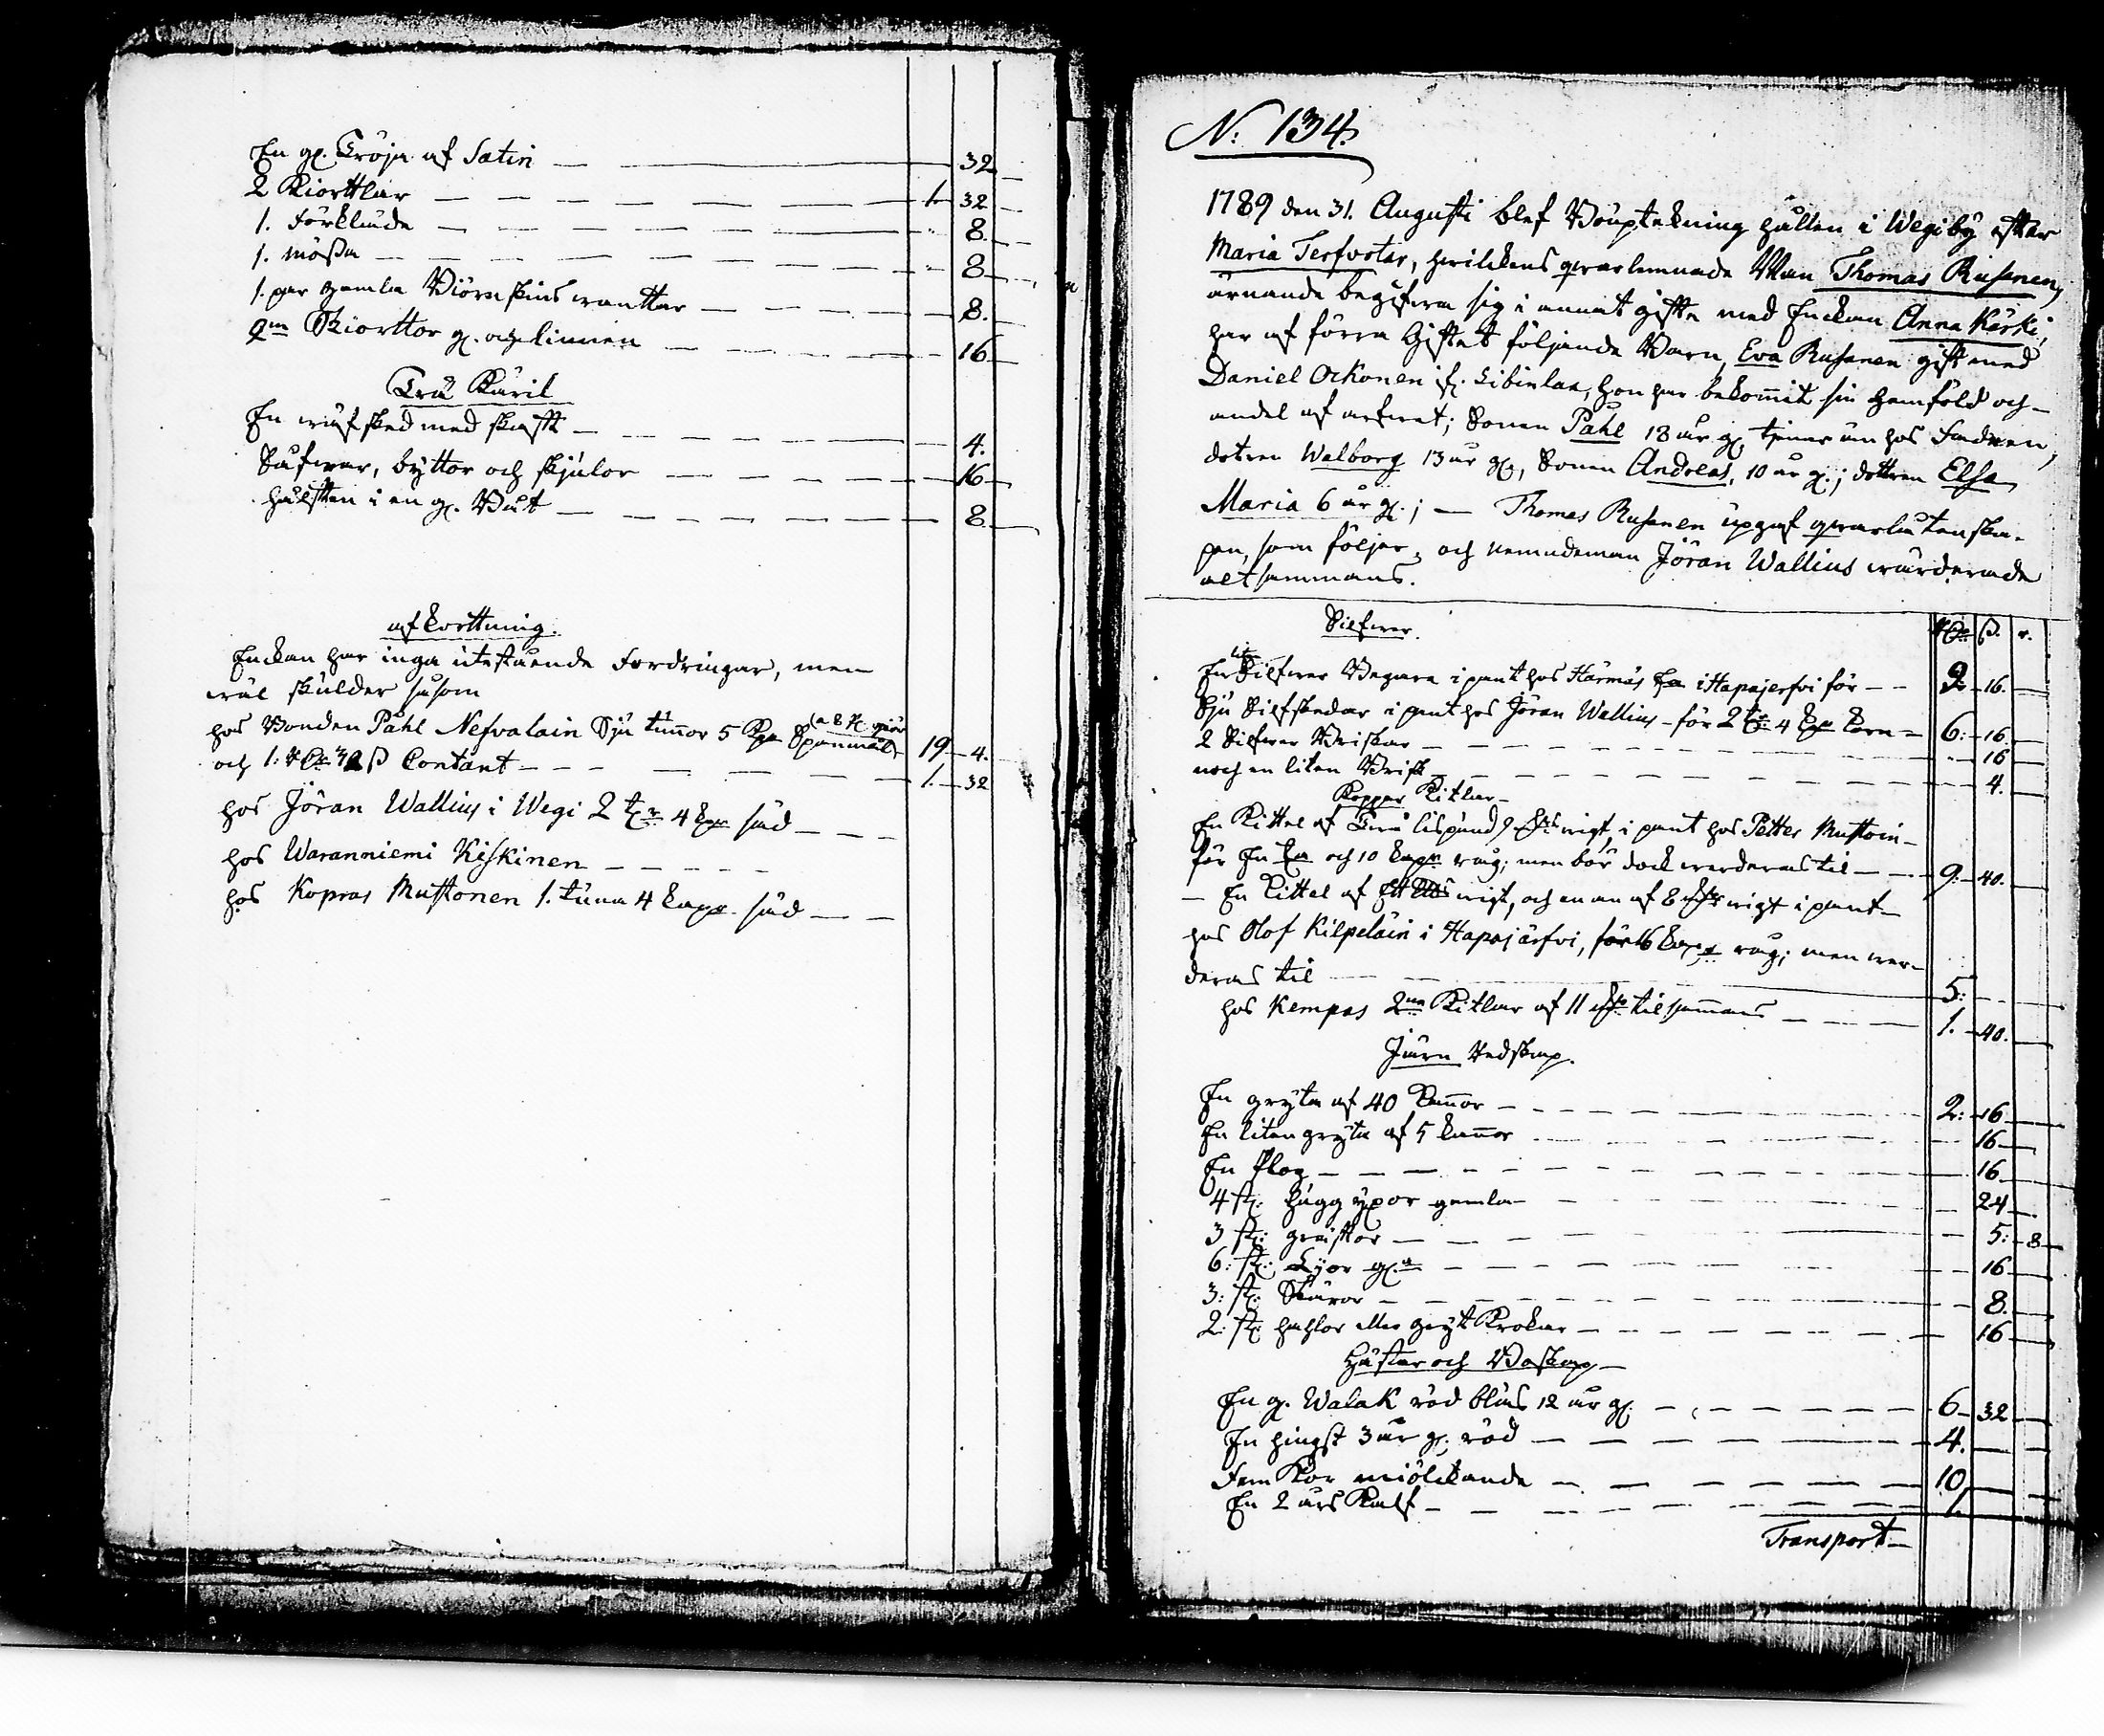 En gl. Tröja af Satin — 32
2 Kiorttlar — 1 32
1. Förkläde — 8
1. mössa — 8
1. par gamla Biörnskins wanttar — 8.
2ne Skiorttor gl. och linnen — 16
Trä Käril
En räfsked med skafft — 4.
Såfwar, byttor och skjulor — 16
hälften i en gl. Båt — 8
afkorttning.
Enckan har inga utestående Fordringar, men
wäl skulder såsom
hos Bonden Påhl Nefwalain Sju tunnor 5 Kpr Spanmål 19 4.
och 1: Rdr 32 ß Contant — 1. 32
hos Jöran Wallius i Wegi 2 tr 4 kpr säd —
hos Waranniemi Kiskinen —
hos Kopras Mustonen 1. tuna 4 kapr säd —
N: 134.
1789 den 31. Augusti blef Bouptekning hållen i Wegi by efter
Maria Terfvotar, hwilckens qwarlemnade Man Thomas Rusanen,
ärnande begifwa sig i annat gifte med Enckan Anna Kärki,
har af förra Giftet följande Barn, Eva Rusanen gift med
Daniel Ockonen if. Libinlax, hon har bekommit sin hemföld och
andel af arfwet; Sonen Påhl 18 år gl. tjenar än hos Fadren,
dotren Walborg 13 år gl, Sonen Andreas, 10 år gl.; dottren Elsa
Maria 6 år gl.; — Thomas Rusanen upgaf qwarlåtenska-
pen, som följer, och nemndeman Jöran Wallius wärderade
altsammans.
Silfwer. Rdr ß. r.
En liten Silfwer Begare i pant hos Härmäs i Hapajerfvi för — 2 16.
Sju Silfskedar i pant hos Jöran Wallius för 2 tr 4 kpr korn — 6: 16.
2 Silfwer Briskar — 16
noch en liten Brisk — 4.
Koppar Kitlar
En Kittel af Twå lispund 9 wigt, i pant hos Petter Mustoin
för En och 10 kapr råg; men bör dock werderas til — 9. 40.
— En Kittel af Ett wigt, och en an af 8 wigt i pant
hos Olof Kilpeläin i Hapajärfvi, för 16 kapr råg; men wer-
deras til — 5:
hos Kempas 2ne Kitlar af 11 tilsammans — 1. 40.
Järn Redskap.
En gryta af 40 Kannor — 2: 16
En liten gryta af 5 kannor — 16
En Plog — 16
4 st. hugg yxor gamla — 24
3 st: gräftor — 5: 8
6: st: Lijor gl.a — 16
3: st: Skäror — 8.
2: st: hahlor eller gryt Krokar — 16
Hästar och Boskap
En gl. Walak röd bläs 12 år gl. — 6 32
En hingst 3 år gl. röd — 4.
Fem Kor miölckande — 10
En 2 års Kalf — 1.
Transport